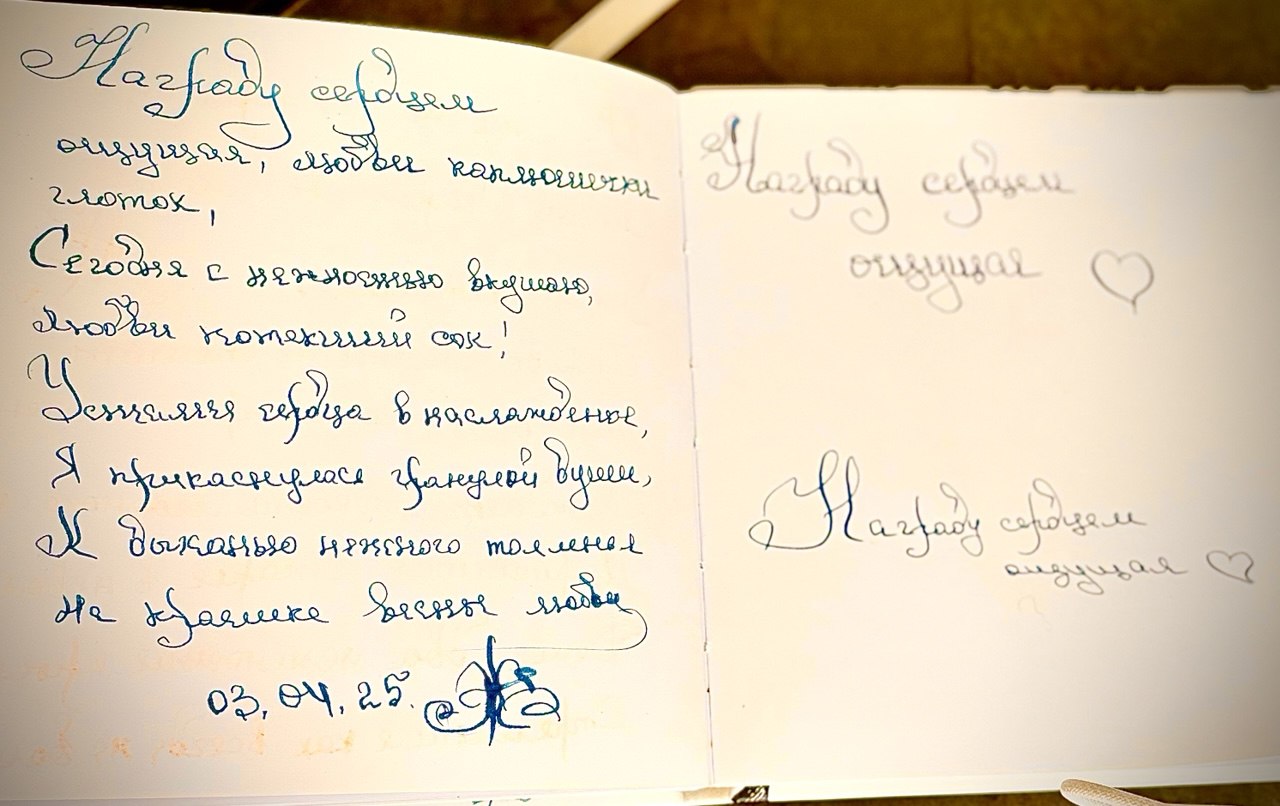 Награду сердцем
ощущая, любви каплюшечки
глоток,
Сегодня с нежностью вкушаю,
любви потекший сок!
сердца в наслажденье,
Я прикаснулась гранулой души,
К дыханью нежного томленья
На краешке весны любви
03.04.25.
Награду сердцем
ощущая
Награду сердцем
ощущая